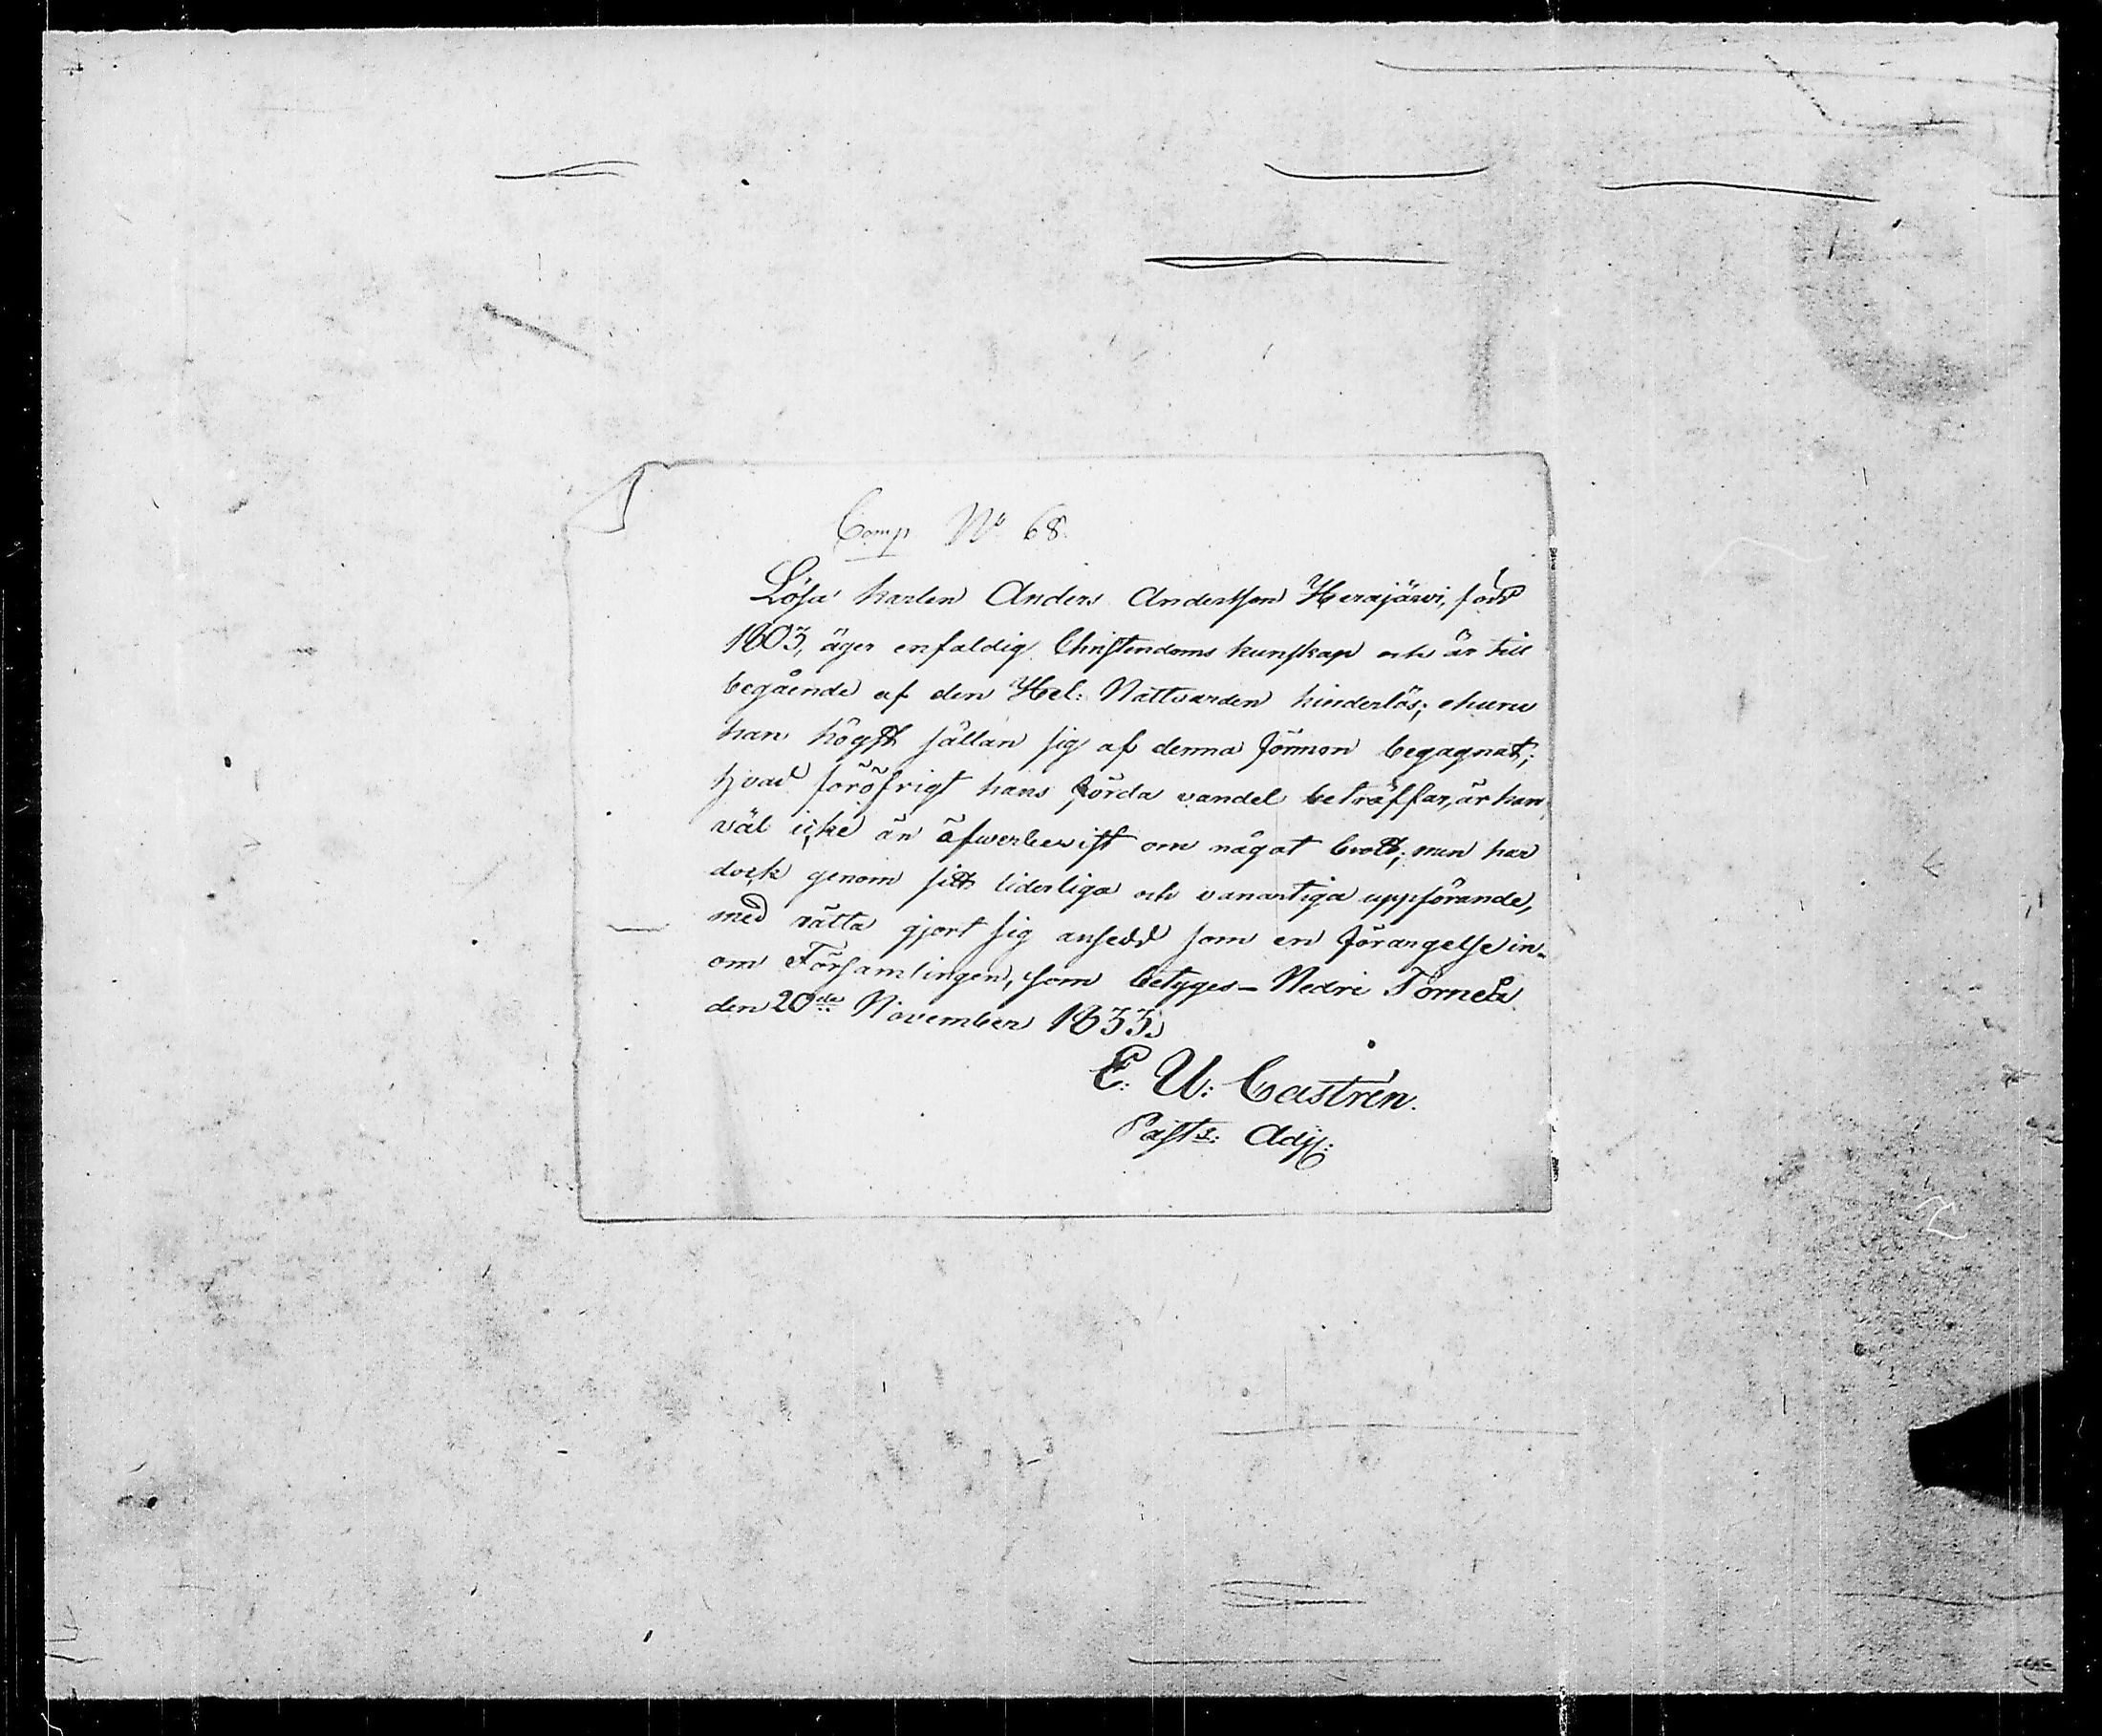 Comp No 68.
Lösa karlen Anders Andersson Herajärvi, född
1803, äger enfaldig Christendoms kunskap och är till
begående af den Hel: Nattvarden hinderlös; ehuru
han högst sällan sig af denna förmon begagnat;
hvad föröfrigt hans förda vandel beträffar, är han
väl icke än äfwerbevist om något brott; men har
dock genom sitt liderliga och vanartiga uppförande,
med rätta gjort sig ansedd som en förargelse in-
om Församlingen, som betyges - Nedre Torneå
den 20de November 1833.
E: U: Castrén.
Past:s: Adj: